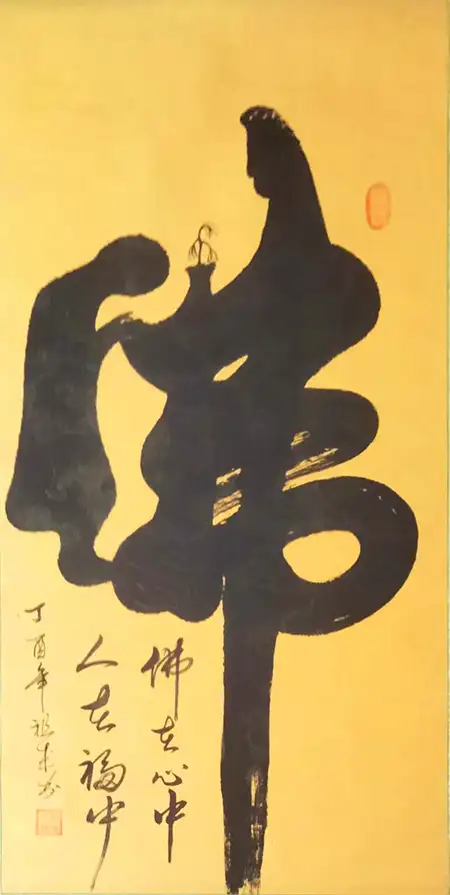 佛
佛在心中
人在福中
丁酉年